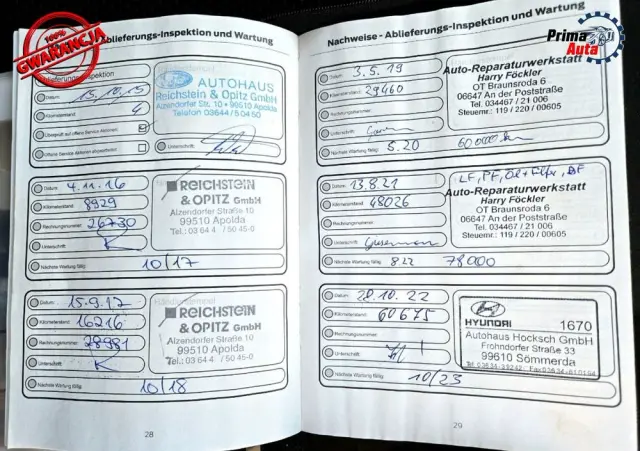 100%
GWARANCJA
Prima
Auta
Ablieferungs-Inspektion und Wartung
Ablieferungs-Inspektion
Datum: 15.10.15
Kilometerstand: 4
Überprüft auf offene Service Aktionen:
Offene Service Aktionen abgearbeitet:
Unterschrift:
AUTOHAUS
Reichstein & Opitz GmbH
Alzendorfer Str. 10 • 99510 Apolda
Telefon 03644/50450
Datum: 4.11.16
Kilometerstand: 8929
Rechnungsnummer: 26730
Unterschrift:
Nächste Wartung fällig: 10/17
REICHSTEIN
& OPITZ GmbH
Alzendorfer Straße 10
99510 Apolda
Tel.: 03644 / 50 45-0
Datum: 15.9.17
Kilometerstand: 16216
Rechnungsnummer: 28981
Unterschrift:
Nächste Wartung fällig: 10/18
REICHSTEIN
& OPITZ GmbH
Alzendorfer Straße 10
99510 Apolda
Tel.: 03644 / 50 45-0
28
Nachweise - Ablieferungs-Inspektion und Wartung
Datum: 3.5.19
Kilometerstand: 29460
Rechnungsnummer:
Unterschrift:
Nächste Wartung fällig: 5.20 60.000 km
Auto-Reparaturwerkstatt
Harry Föckler
OT Braunsroda 6
06647 An der Poststraße
Tel. 034467 / 21 006
Steuernr.: 119 / 220 / 00605
Datum: 13.8.21
Kilometerstand: 48026
Rechnungsnummer:
Unterschrift:
Nächste Wartung fällig: 8 22 78000
LF, PF, Öl + Filter, BF
Auto-Reparaturwerkstatt
Harry Föckler
OT Braunsroda 6
06647 An der Poststraße
Tel. 034467 / 21 006
Steuernr.: 119 / 220 / 00605
Datum: 28.10.22
Kilometerstand: 60675
Rechnungsnummer:
Unterschrift:
Nächste Wartung fällig: 10/23
HYUNDAI 1670
Autohaus Hocksch GmbH
Frohndorfer Straße 33
99610 Sömmerda
29